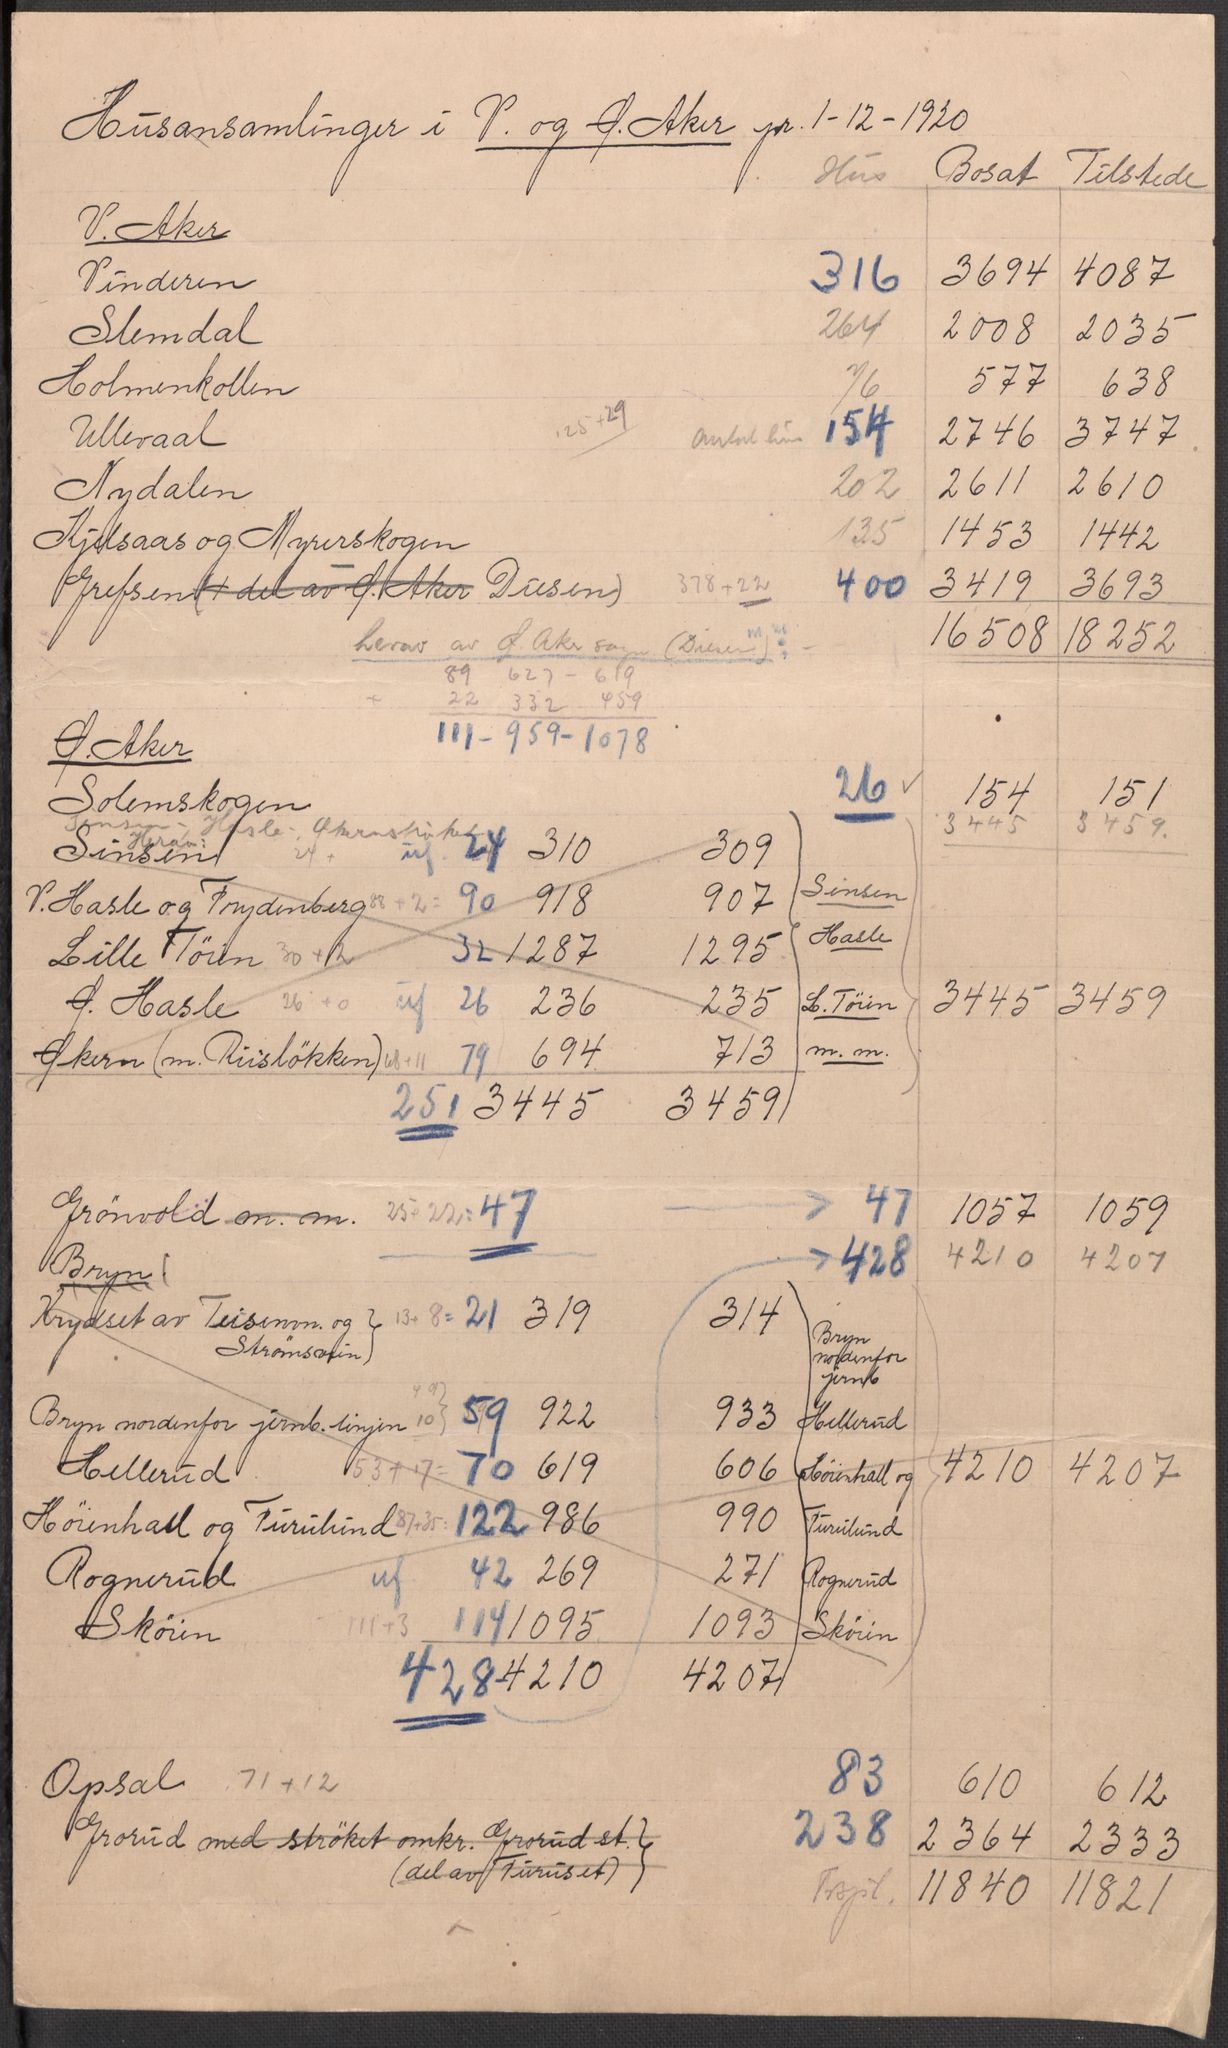 Husansamlinger i V. og Ø. Aker pr. 1-12-1920
Hus Bosat Tilstede
V. Aker
Vinderen 316 3694 4087
Slemdal 264 2008 2035
Holmenkollen 76 577 638
Ullevaal 125+29 Antal hus 154 2746 3747
Nydalen 202 2611 2610
Kjelsaas og Myrerskogen 135 1453 1442
Grefsen (+ del av Ø. Aker Diesen) 378+22 400 3419 3693
16508 18252
herav av Ø. Aker sogn (Diesen)
89 627 - 619
+ 22 332 459
111 - 959 - 1078
Ø. Aker
Solemskogen 26 154 151
Sinsen - Hasle - Økernstrøket 3445 3459.
Herav:
Sinsen 24 + uf 24 310 309
V. Hasle og Frydenberg 88+2= 90 918 907 Sinsen
Lille Töien 30+2 32 1287 1295 Hasle
Ø. Hasle 26+0 uf 26 236 235 L. Töien 3445 3459
Økern (m. Riislökken) 68+11 79 694 713 m. m.
251 3445 3459
Grönvold m. m. 25+22= 47 47 1057 1059
428 4210 4207
Bryn:
Krydset av Teisenvn. og 13+8= 21 319 314 Bryn nordenfor jernb
Strömsvein
Bryn nordenfor jernb. linjen 49 10 59 922 933 Hellerud
Hellerud 53+17= 70 619 606 Höienhall og 4210 4207
Höienhall og Furulund 87+35= 122 986 990 Furulund
Rognerud uf 42 269 271 Rognerud
Sköien 111+3 114 1095 1093 Sköien
428 4210 4207
Opsal 71+12 83 610 612
Grorud med ströket omkr. Grorud st. 238 2364 2333
(del av Furuset)
11840 11821